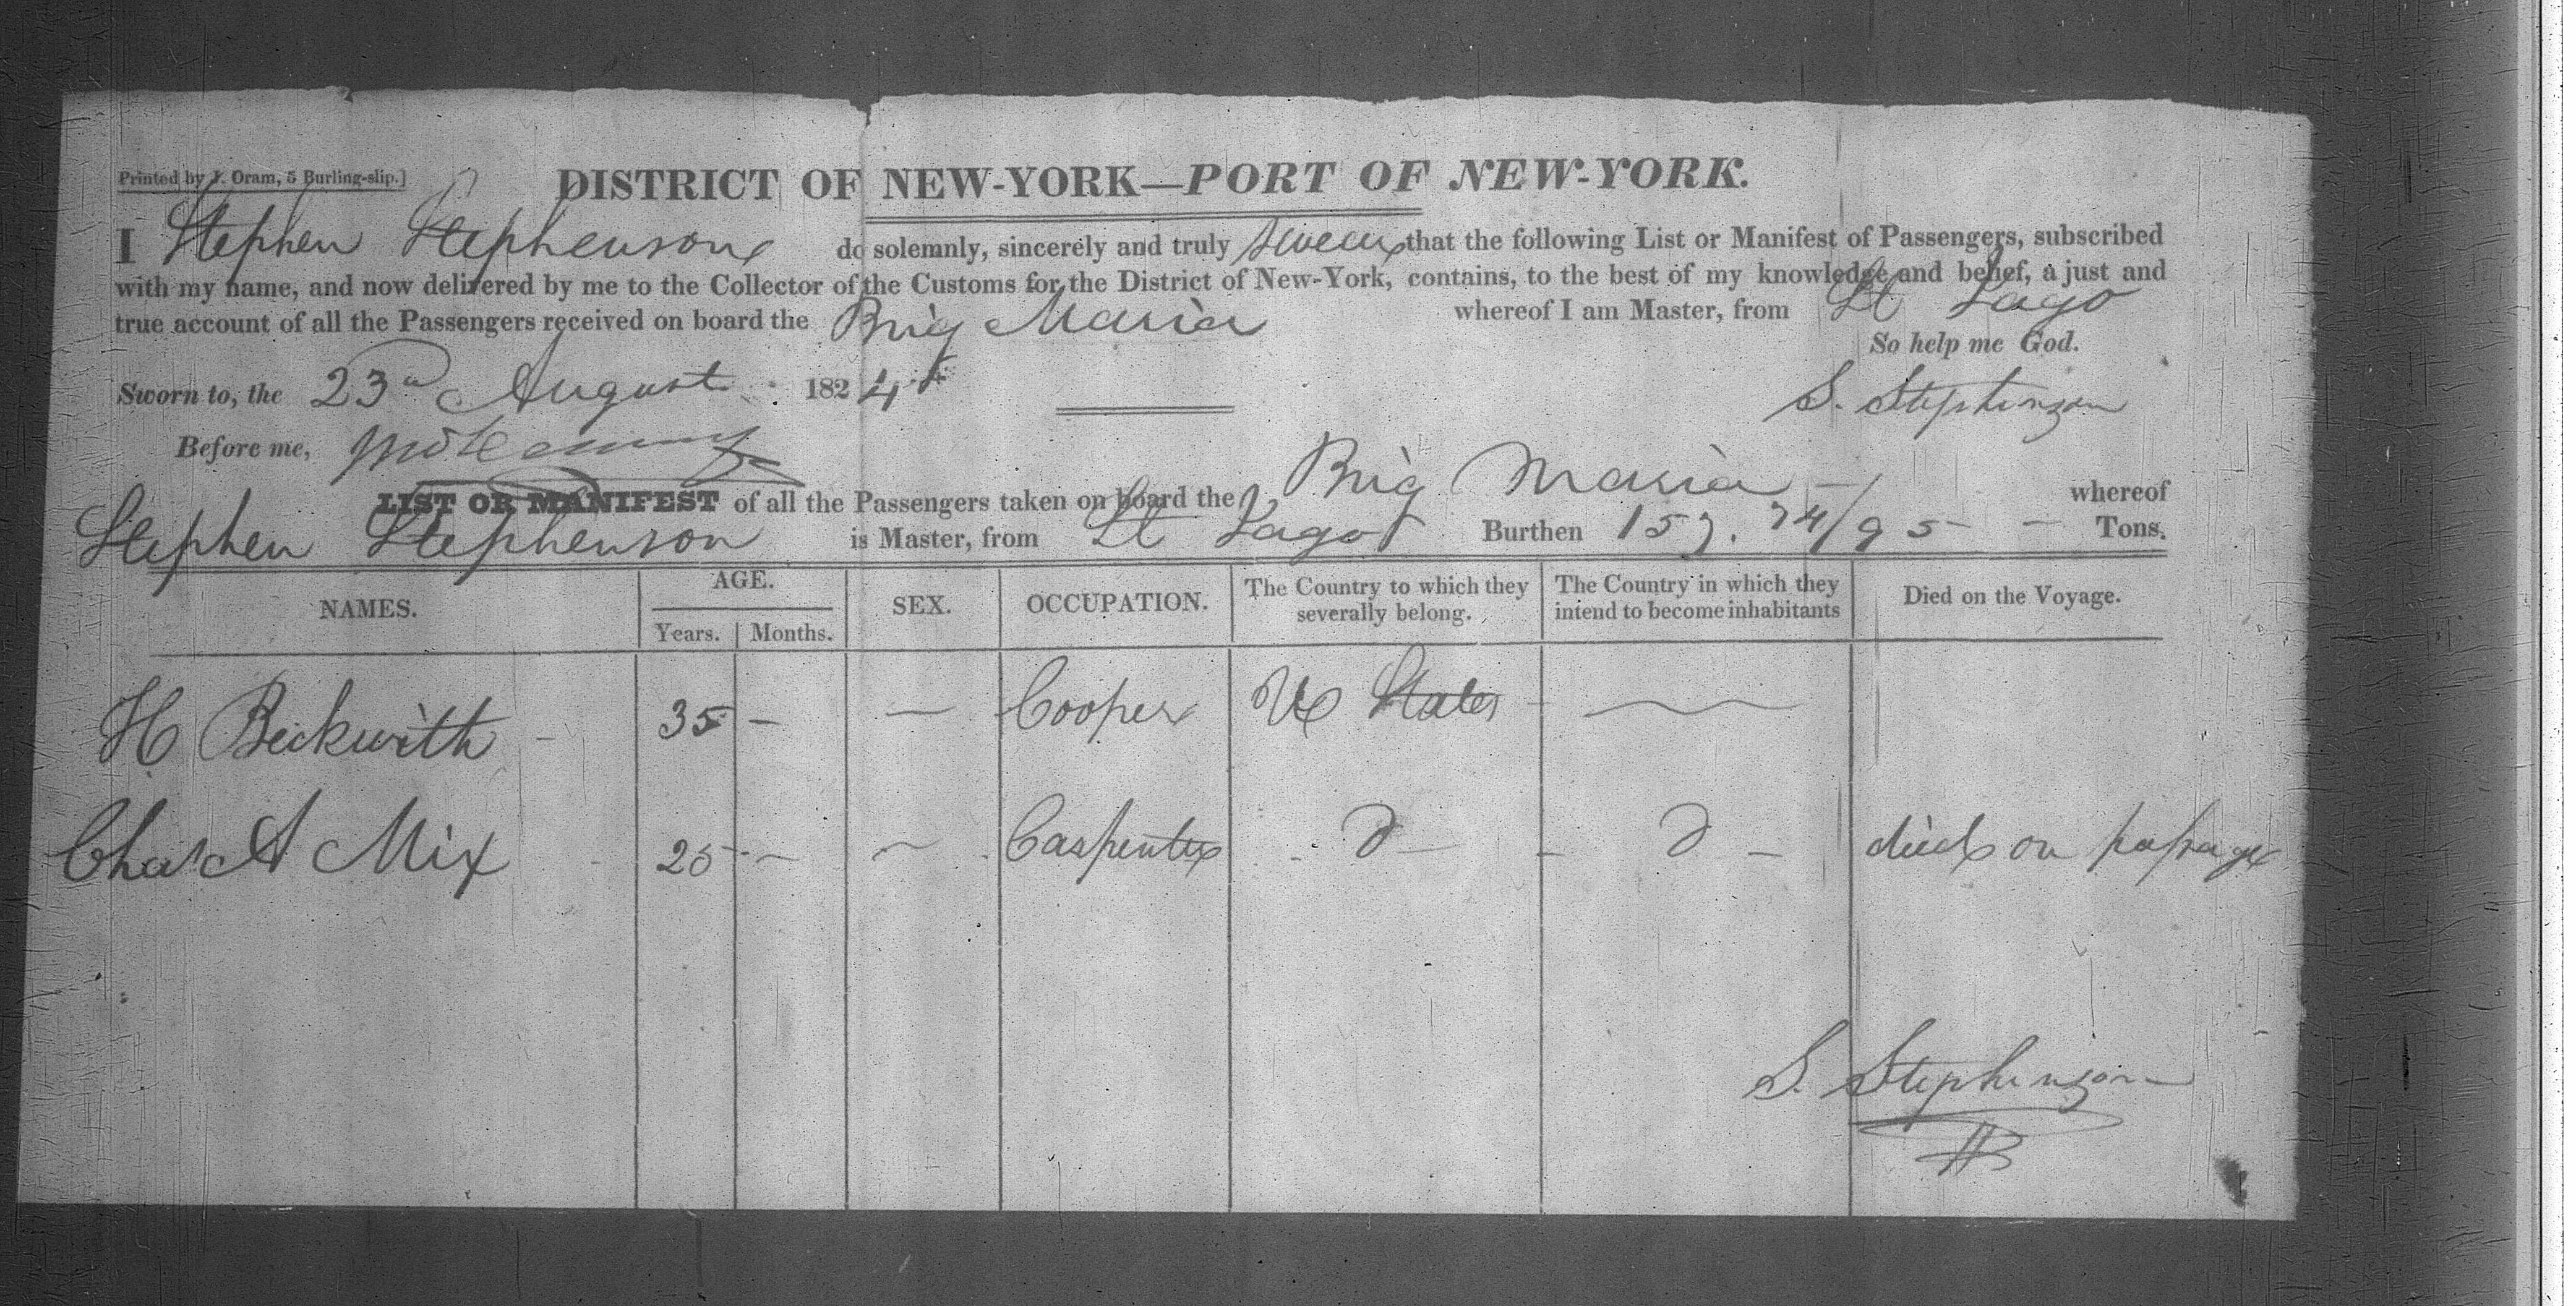 Printed by J. Oram, 5 Burling-slip.]
DISTRICT OF NEW-YORK—PORT OF NEW-YORK.
I Stephen Stephenson do solemnly, sincerely and truly swear that the following List or Manifest of Passengers, subscribed
with my name, and now delivered by me to the Collector of the Customs for the District of New-York, contains, to the best of my knowledge and belief, a just and
true account of all the Passengers received on board the Brig Maria whereof I am Master, from St Iago
So help me God.
Sworn to, the 23d August 1824
S. Stephenson
Before me,
LIST OR MANIFEST of all the Passengers taken on board the Brig Maria — whereof
Stephen Stephenson is Master, from St Iago Burthen 157. 74/95 — Tons.
NAMES. AGE. Years. Months. SEX. OCCUPATION. The Country to which they severally belong. The Country in which they intend to become inhabitants Died on the Voyage.
H Beckwith - 35 - — Cooper U States —
Chas A Mix 25 - — Carpenter - Do - - Do - died on passage
S. Stephenson